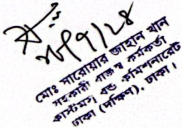 ৯/৭/২৪
মোঃ সারোয়ার জাহান খান
সহকারী রাজস্ব কর্মকর্তা
কাস্টমস এন্ড কমিশনারেট
ঢাকা (দক্ষিন), ঢাকা।